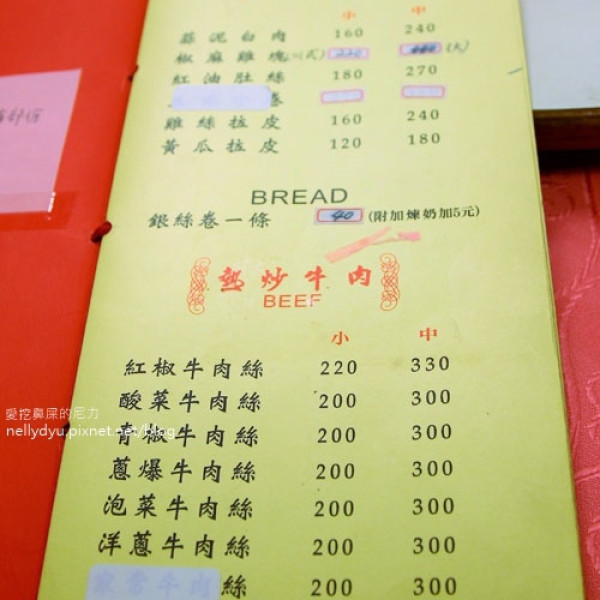 小 中
蒜泥白肉 160 240
椒麻雞塊(川式) 220 (大)
紅油肚絲 180 270
卷
雞絲拉皮 160 240
黃瓜拉皮 120 180
BREAD
銀絲卷一條 40 (附加煉奶加5元)
熱炒牛肉
BEEF
小 中
紅椒牛肉絲 220 330
酸菜牛肉絲 200 300
青椒牛肉絲 200 300
蔥爆牛肉絲 200 300
泡菜牛肉絲 200 300
洋蔥牛肉絲 200 300
家常牛肉絲 200 300
愛挖鼻屎的尼力
nellydyu.pixnet.net/blog